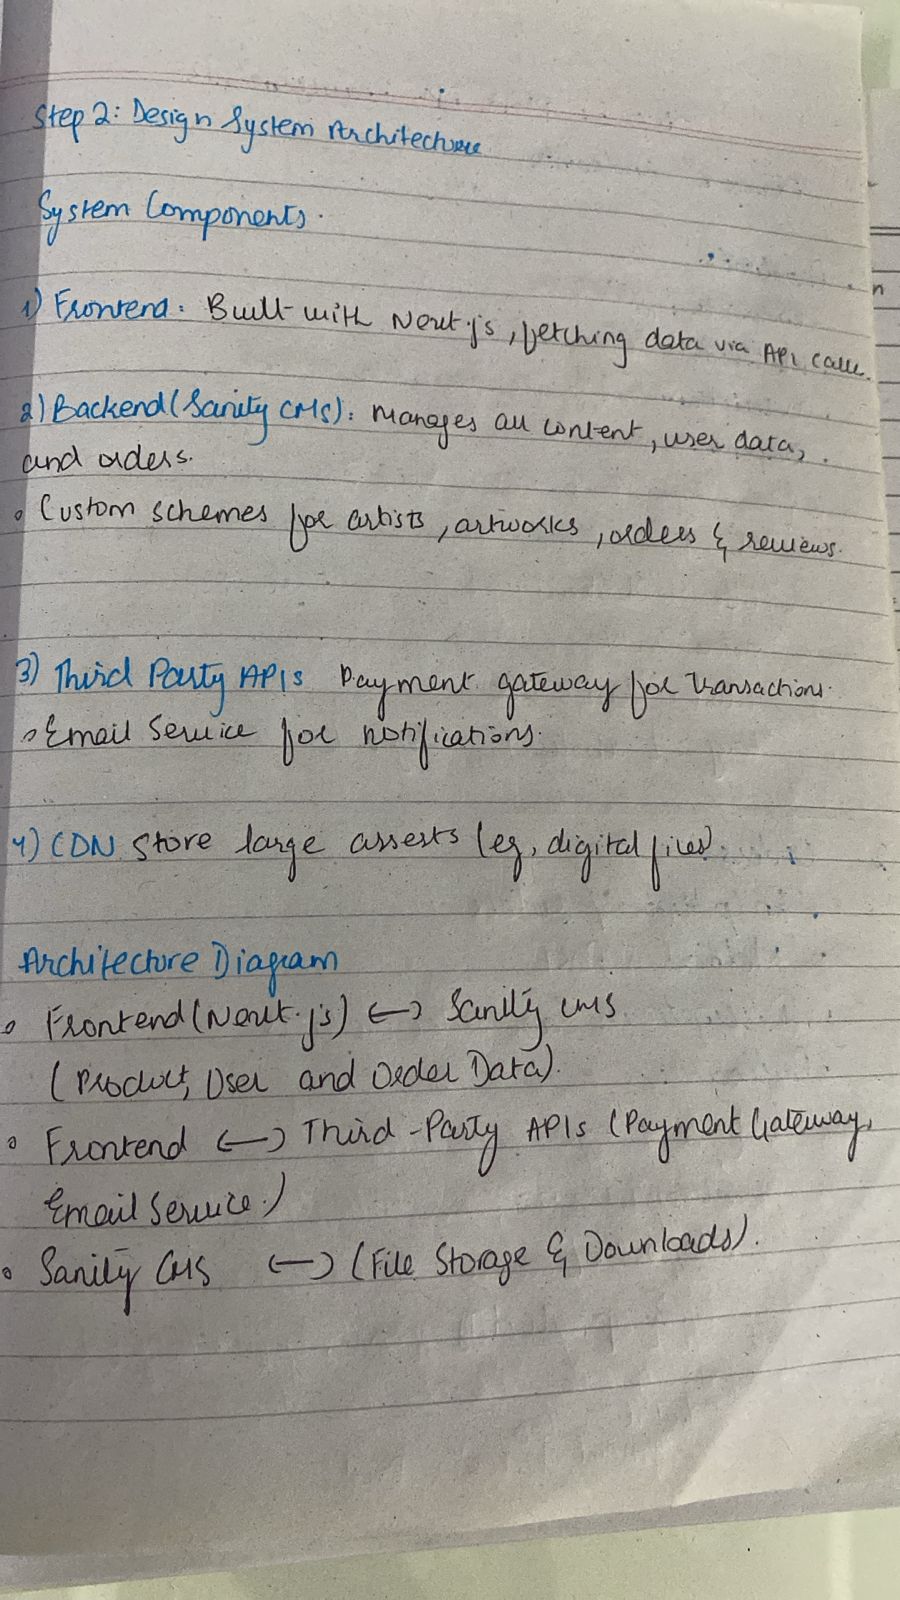 Step 2: Design System Architecture
System Components.
1) Frontend: Built with Next.js, fetching data via API calls.
2) Backend (Sanity CMS): Manages all content, user data,
and orders.
◦ Custom schemes for artists, artworks, orders & reviews.
3) Third Party APIs Payment gateway for transactions.
◦ Email Service for notifications.
4) CDN Store large assests (eg, digital files).
Architecture Diagram
◦ Frontend (Next.js) ↔ Sanity CMS
(Product, User and Order Data).
◦ Frontend ↔ Third-Party APIs (Payment Gateway,
Email Service.)
◦ Sanity CMS ↔ (File Storage & Downloads).